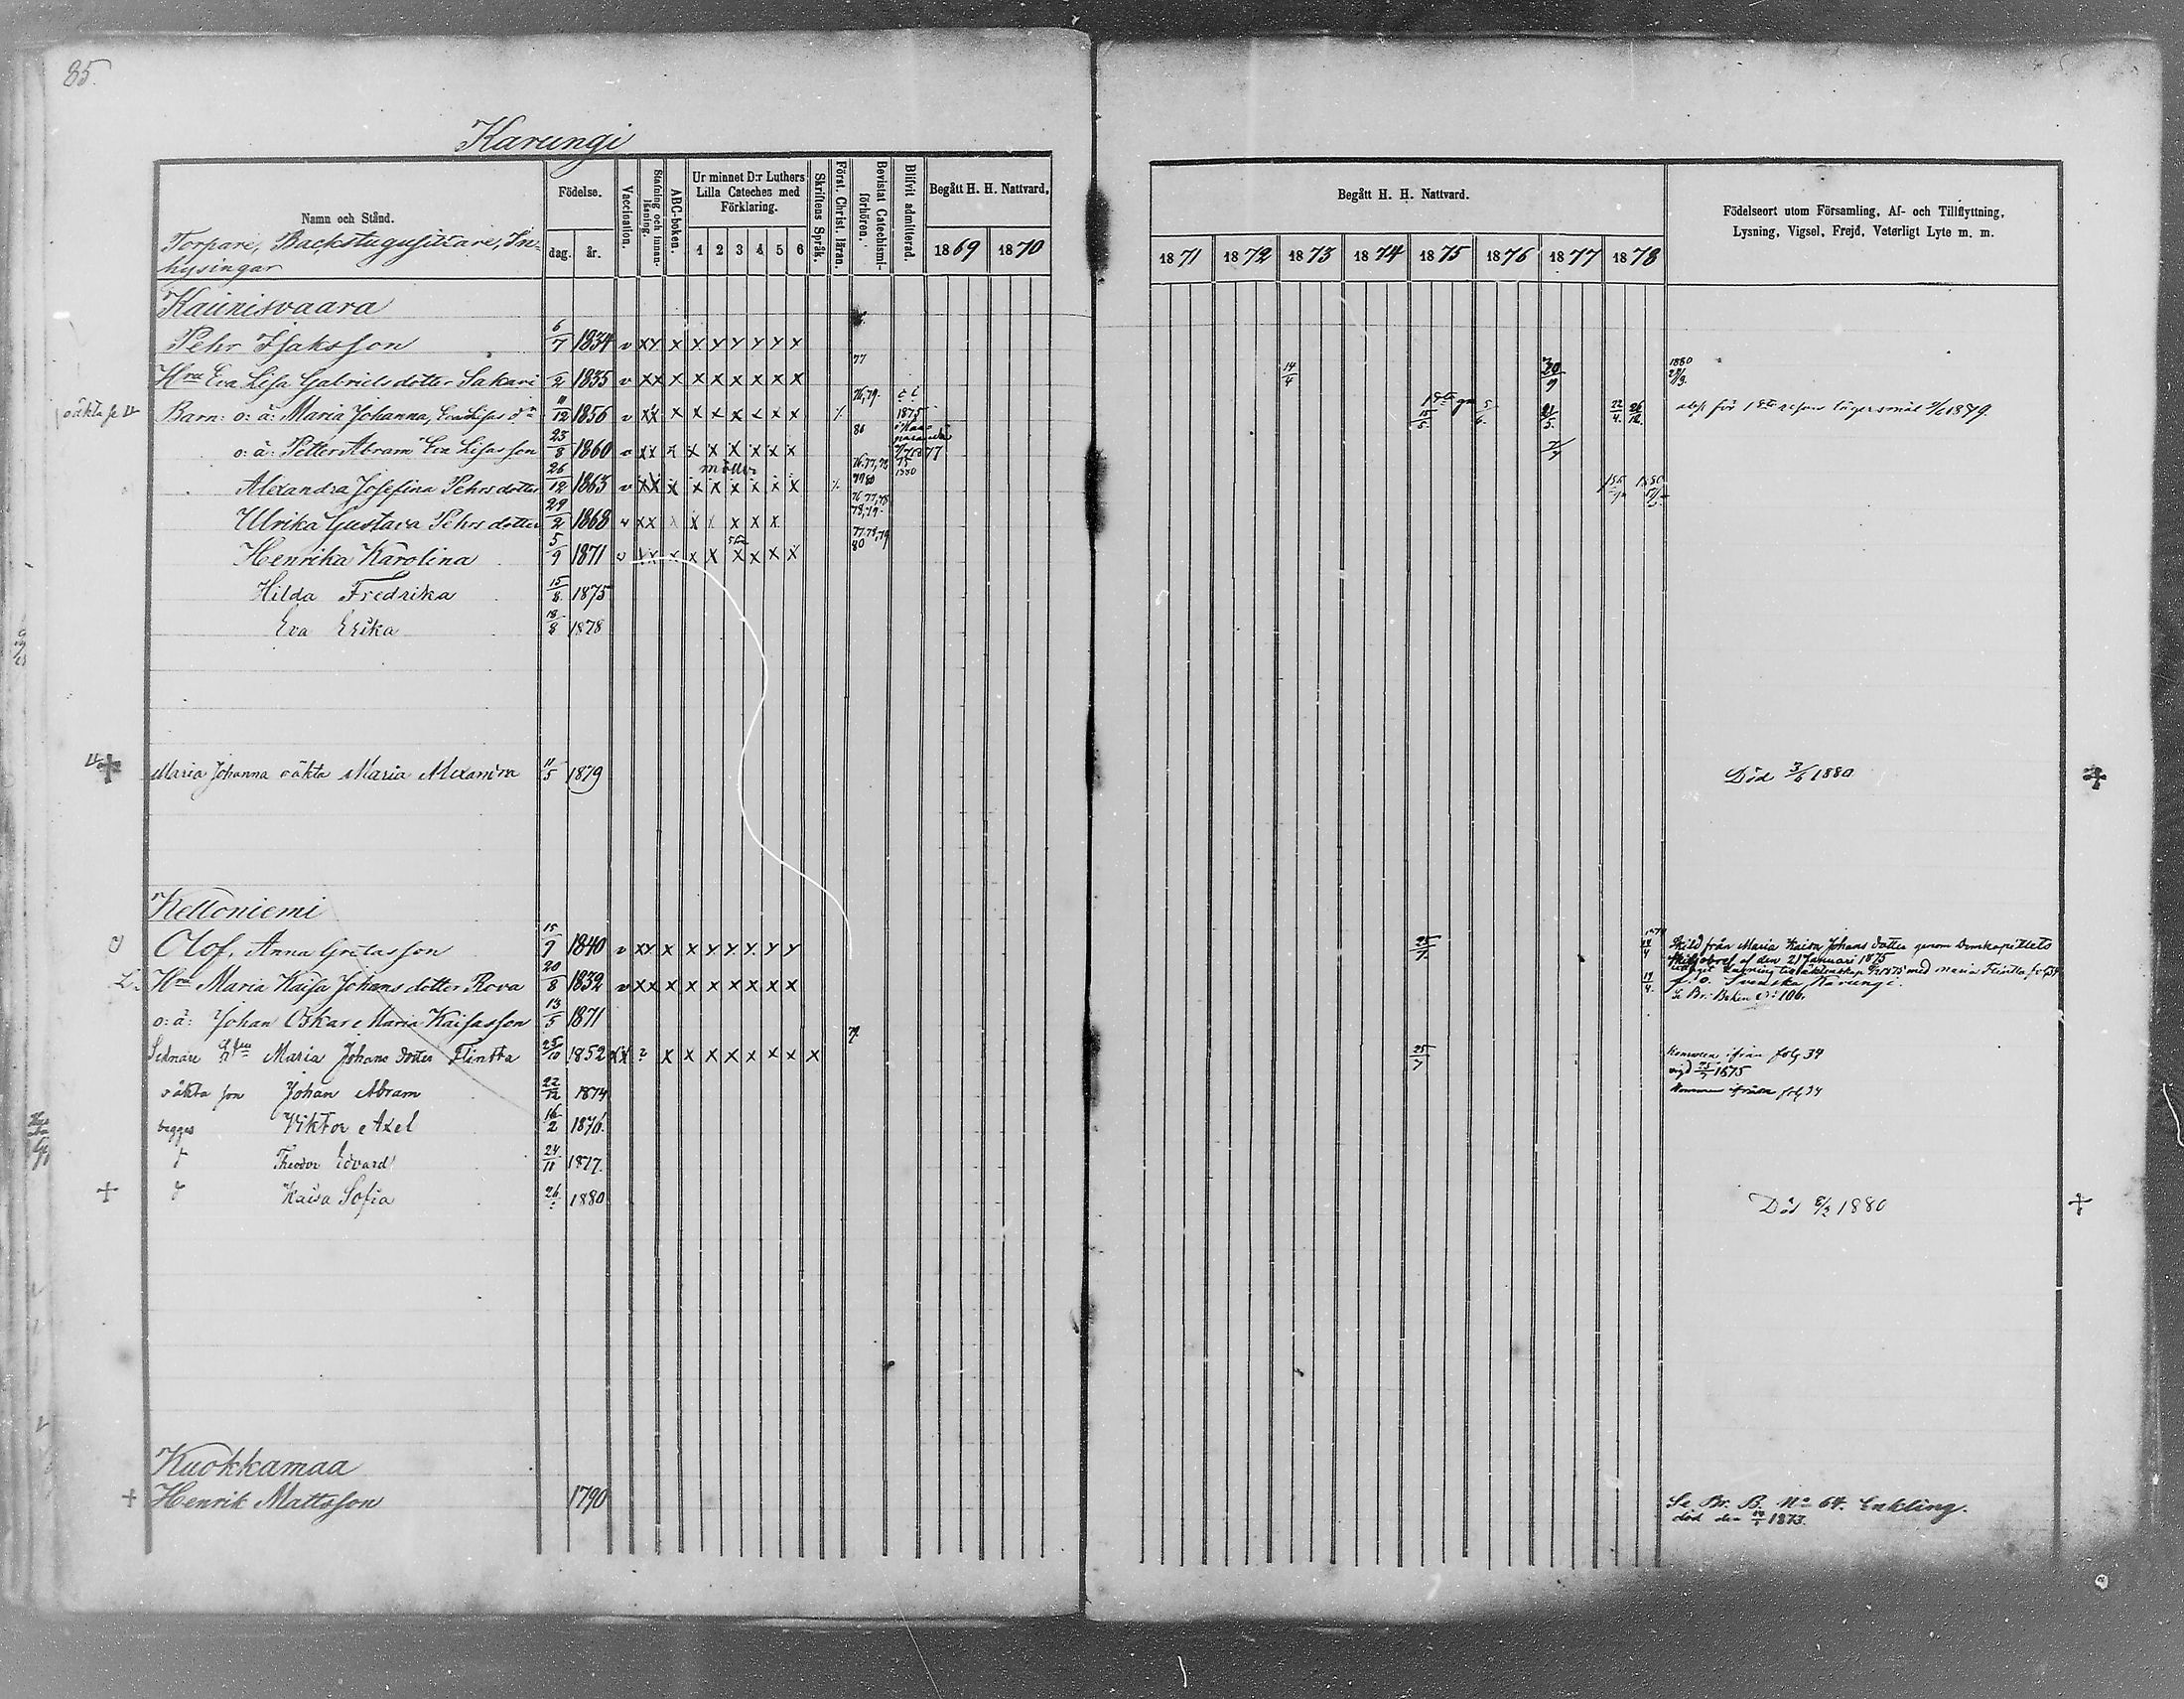 85.
Karungi
Namn och Stånd.
Födelse.
dag.
år.
Vaccination.
Stafning och innan-läsning.
ABC-boken.
Ur minnet D:r Luthers
Lilla Cateches med
Förklaring.
1 2 3 4 5 6
Skriftens Språk.
Först. Christ. läran.
Bevistat Catechismi-förhören.
Blifvit admitterad.
Begått H. H. Nattvard.
1869 1870
Begått H. H. Nattvard.
1871 1872 1873 1874 1875 1876 1877 1878
Födelseort utom Församling, Af- och Tillflyttning,
Lysning, Vigsel, Frejd, Veterligt Lyte m. m.
Torpare, Backstugusittare, In-
hysingar
Kaunisvaara
Pehr Isaksson 6/7 1834 v xx x x x x x x x
77
Hru Eva Lisa Gabrielsdotter Sakari /2 1835 v xx x x x x x x x 14/4 30/9 1880
oäkta Barn: o: ä: Maria Johanna, Eva Lisas dr 11/12 1856 v xx x x x x x x x 76,79. 1875 15/5 5/6 21/5 22/4 26/12 abs. för 1sta resan lägersmål 1879.
o: ä: Petter Abram Eva Lisas son 23/8 1860 v xx x x x x x x x 80 1877
Alexandra Josefina Pehrsdotter 26/12 1863 v xx x x x x x x x 1880
Ulrika Gustava Pehrsdotter 29/2 1868 v xx x x x x x x 78,79.
Henrika Karolina 5/9 1871 v xx x x x x x x x 77,78,79 80
Hilda Fredrika 15/8 1875
Eva Erika 18/8 1878
Maria Johanna oäkta Maria Alexandra 11/5 1879 Död 3/6 1880
Kelloniemi
Olof, Anna Gretasson 15/7 1840 v xx x x x x x x x 25/7 Skild från Maria Kaisa Johans dotter genom Domkapitlets
Skiljobref af den 21 Januari 1875
Hru Maria Kaisa Johans dotter Rova 20/8 1832 v xx x x x x x x x 19/4 f. o. Svenska Karungi.
Se Br: Boken N: 106.
o: ä: Johan Oskar Maria Kaisasson 13/5 1871
Sednare Hru Maria Johans dotter Flintta 25/10 1852 xx ? x x x x x x x x 25/7 Kommen ifrån fol. 34
vigd 25/7 1875
oäkta son Johan Abram 22/12 1874 Kommen från fol. 34
begges Viktor Axel 16/2 1876.
Theodor Edvard 24/11 1877.
Kaisa Sofia 26 1880 Död 6/3 1880
Kuokkamaa
Henrik Mattsson 1790 Se Br. B. No 64. Enkling.
död den 1873.